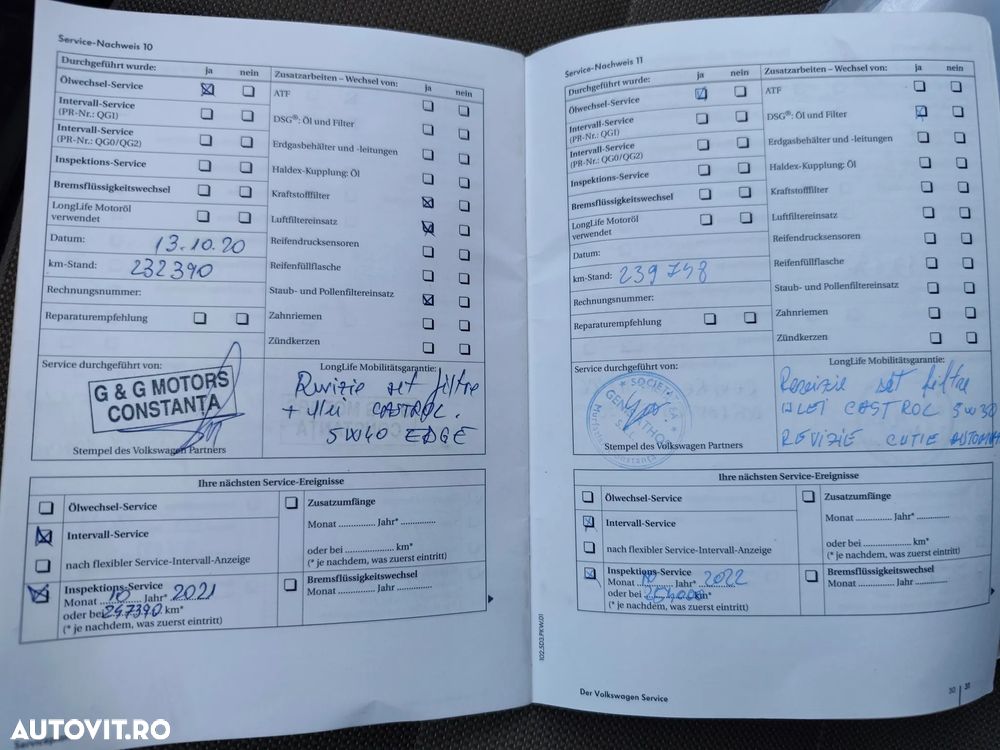 Service-Nachweis 10
Durchgeführt wurde: ja nein
Ölwechsel-Service
Intervall-Service
(PR-Nr.: QGI)
Intervall-Service
(PR-Nr.: QG0/QG2)
Inspektions-Service
Bremsflüssigkeitswechsel
LongLife Motoröl
verwendet
Datum: 13.10.20
km-Stand: 232390
Rechnungsnummer:
Reparaturempfehlung
Zusatzarbeiten – Wechsel von: ja nein
ATF
DSG®: Öl und Filter
Erdgasbehälter und -leitungen
Haldex-Kupplung: Öl
Kraftstofffilter
Luftfiltereinsatz
Reifendrucksensoren
Reifenfüllflasche
Staub- und Pollenfiltereinsatz
Zahnriemen
Zündkerzen
Service durchgeführt von:
G & G MOTORS
CONSTANȚA
Stempel des Volkswagen Partners
LongLife Mobilitätsgarantie:
Revizie set filtre
+ Ulei CASTROL.
5W40 EDGE
Ihre nächsten Service-Ereignisse
Ölwechsel-Service
Intervall-Service
nach flexibler Service-Intervall-Anzeige
Inspektions-Service
Monat 10 Jahr* 2021
oder bei 247390 km*
(* je nachdem, was zuerst eintritt)
Zusatzumfänge
Monat .............. Jahr* .............
oder bei ................... km*
(* je nachdem, was zuerst eintritt)
Bremsflüssigkeitswechsel
Monat .............. Jahr* .............
Service-Nachweis 11
Durchgeführt wurde: ja nein
Ölwechsel-Service
Intervall-Service
(PR-Nr.: QGI)
Intervall-Service
(PR-Nr.: QG0/QG2)
Inspektions-Service
Bremsflüssigkeitswechsel
LongLife Motoröl
verwendet
Datum:
km-Stand: 239748
Rechnungsnummer:
Reparaturempfehlung
Zusatzarbeiten – Wechsel von: ja nein
ATF
DSG®: Öl und Filter
Erdgasbehälter und -leitungen
Haldex-Kupplung: Öl
Kraftstofffilter
Luftfiltereinsatz
Reifendrucksensoren
Reifenfüllflasche
Staub- und Pollenfiltereinsatz
Zahnriemen
Zündkerzen
Service durchgeführt von:
Stempel des Volkswagen Partners
LongLife Mobilitätsgarantie:
Revizie set filtre
ULEI CASTROL 5W30
REVIZIE CUTIE AUTOMA
Ihre nächsten Service-Ereignisse
Ölwechsel-Service
Intervall-Service
nach flexibler Service-Intervall-Anzeige
Inspektions-Service
Monat 10 Jahr* 2022
oder bei 254000 km*
(* je nachdem, was zuerst eintritt)
Zusatzumfänge
Monat .............. Jahr* .............
oder bei ................... km*
(* je nachdem, was zuerst eintritt)
Bremsflüssigkeitswechsel
Monat .............. Jahr* .............
102.5D3.PKW.01
Der Volkswagen Service
30 31
AUTOVIT.RO